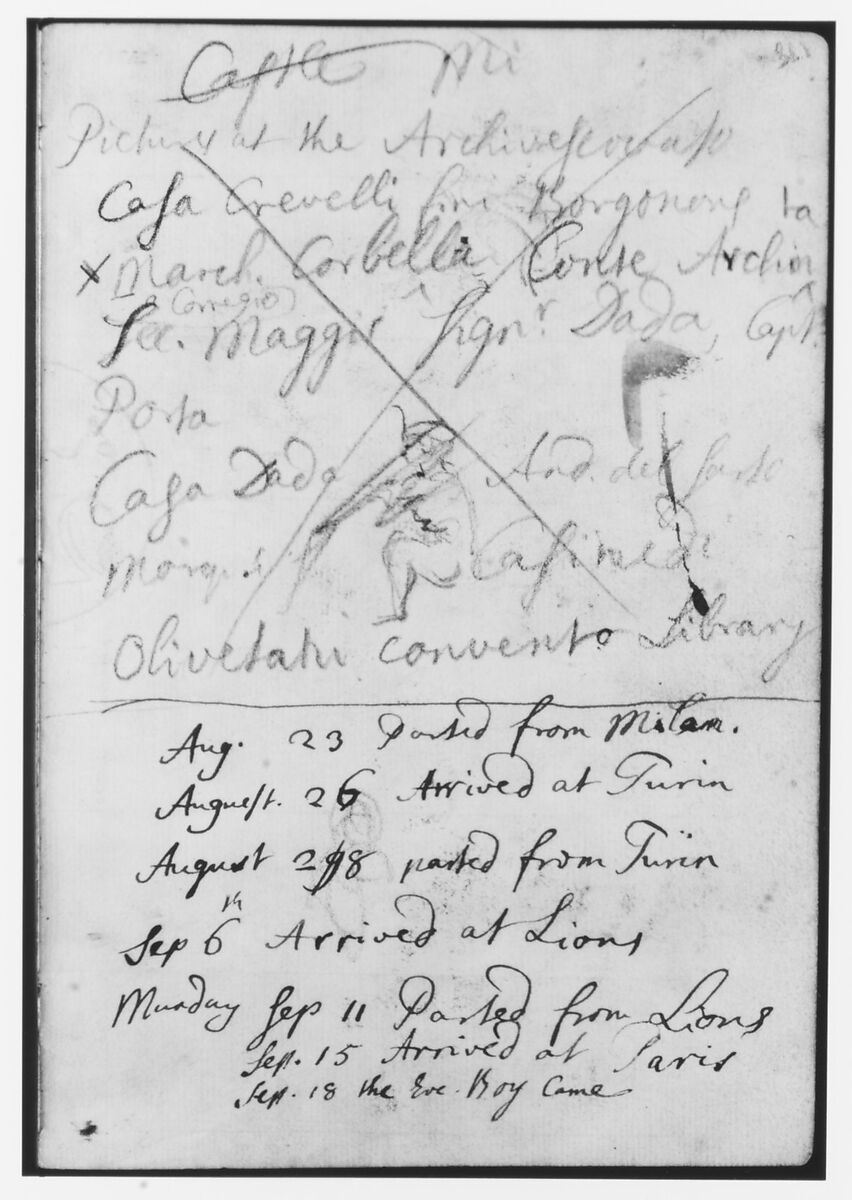 Castle Mi
Pictures at the Archivescovato
Casa Crevelli fini Borgonons ta
x March. Corbella Conte Archin
Corregio
Sec. Maggis Sign.r Dada, Capt.
Porta
Casa Dada And. del Sarto
Casimedi
Olivetani convento Library
Aug. 23 Parted from Milan.
Auguest. 26 Arrived at Turin
August 28 parted from Turin
Sep 6th Arrived at Lions
Munday Sep 11 Parted from Lions
Sep. 15 Arrived at Paris
Sep. 18 the Eve. Roy Came